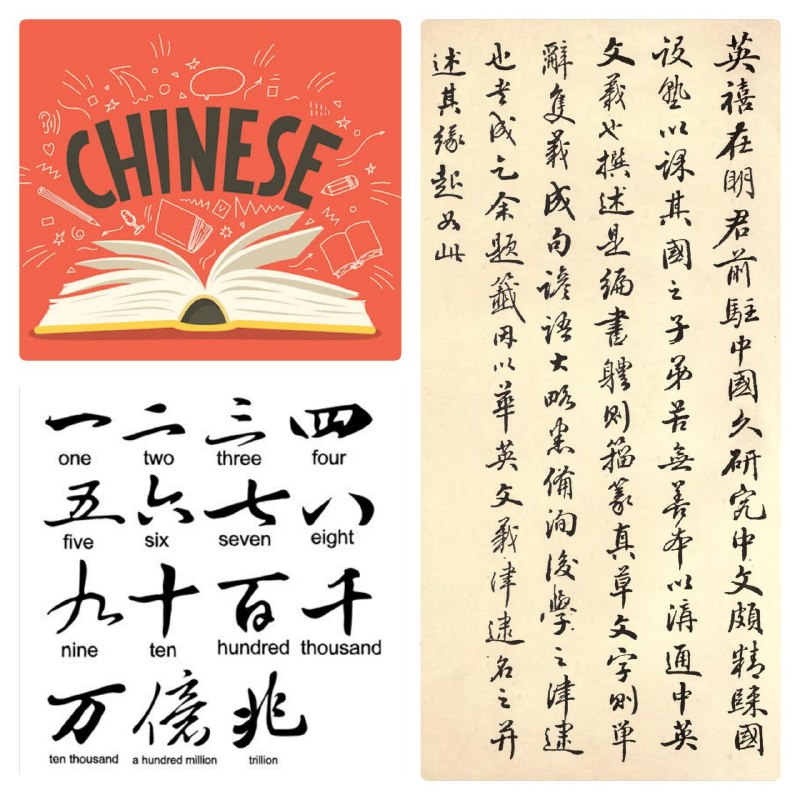 CHINESE
一 二 三 四
one two three four
五 六 七 八
five six seven eight
九 十 百 千
nine ten hundred thousand
万 億 兆
ten thousand a hundred million trillion
英禧在明君前駐中國久研究中文頗精歸國
設塾以課其國之子弟苦無善本以溝通中英
文義也撰述是編書體則籀篆真草文字則單
辭隻義成句諺語大略悉備洵後學之津逮
也書成乞余題籤因以華英文義津逮名之并
述其緣起如此